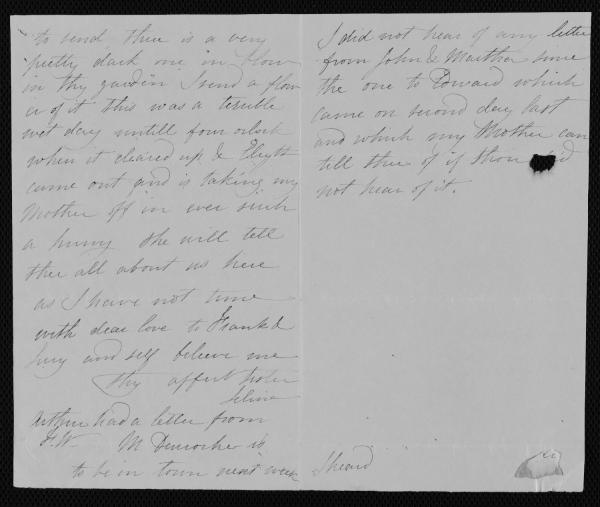 to send, thee is a very
pretty dark one in blow
in thy garden I send a flow
er of it this was a terrible
wet day untill four oclock
when it cleared up & Elizth
came out and is taking my
Mother off in ever such
a hurry she will tell
thee all about us here
as I have not time
with dear love to Frank &
and self believe me
thy affect sister
Selina
Arthur had a letter from
F.W. M
to be in town next week
I heard
I did not hear of any letter
from John & Martha since
the one to Edward which
came on second day last
and which my Mother can
tell thee of if thou did
not hear of it.